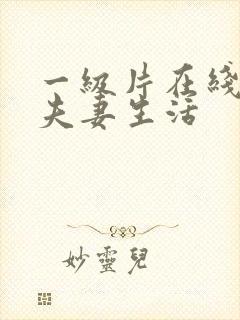 一級片在綫
夫妻生活
妙靈兒